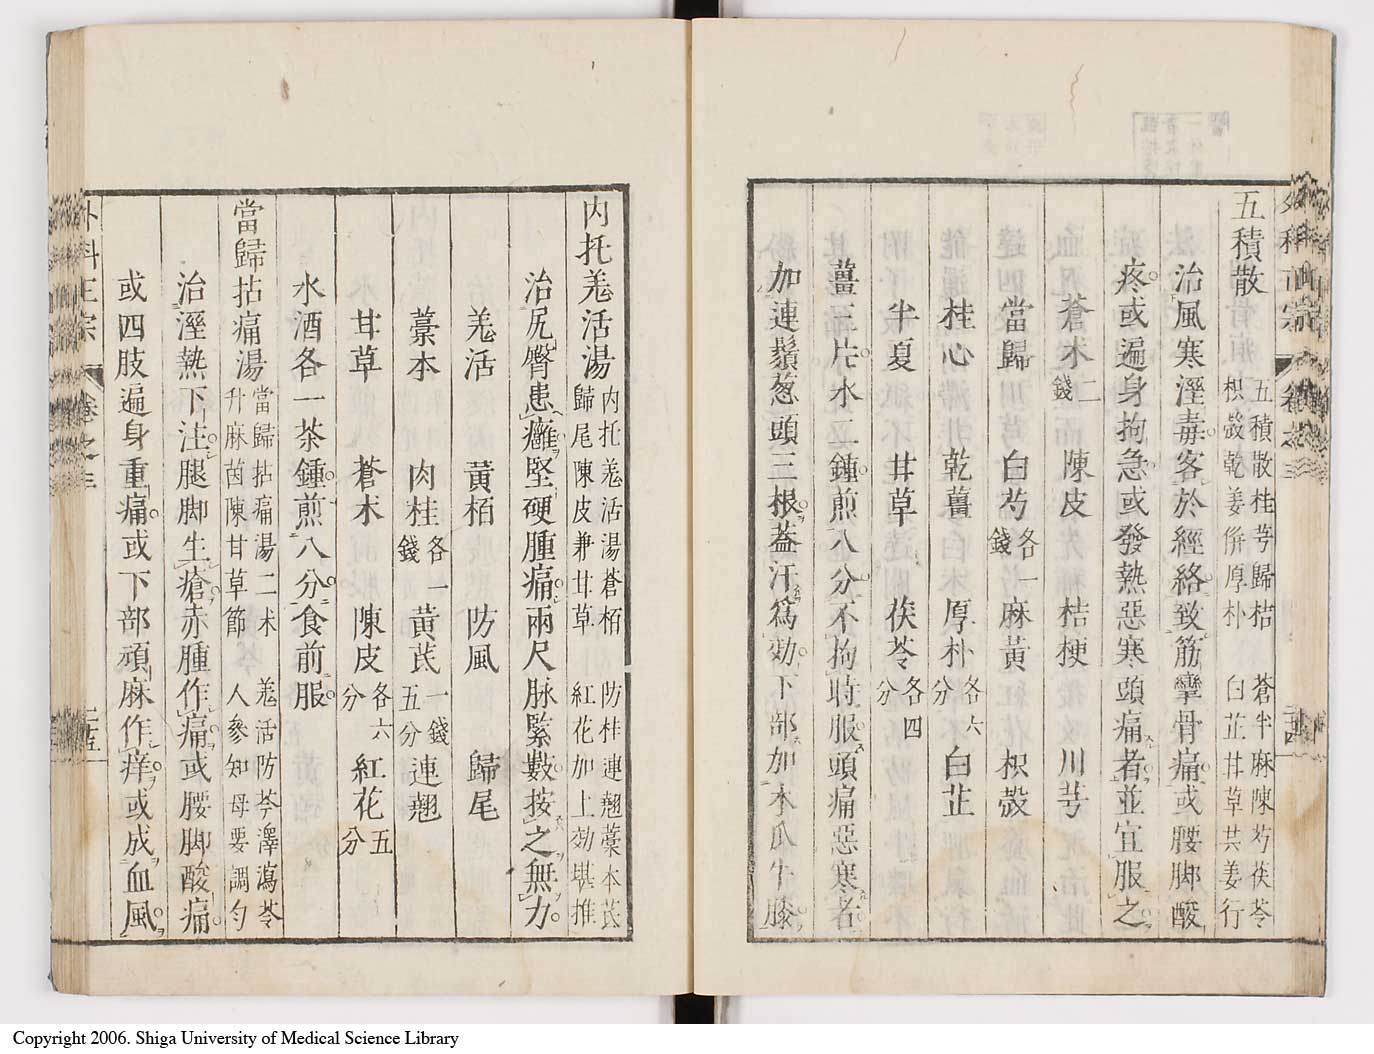 五積散
五積散桂芎歸桔　蒼半麻陳芍茯苓
枳殼乾姜併厚朴　白芷甘草共姜行
治風寒溼毒客於經絡致筋攣骨痛或腰脚酸
疼或遍身拘急或發熱惡寒頭痛者並宜服之
蒼朮二錢　陳皮　桔梗　川芎
當歸　白芍各一錢　麻黃　枳殼
桂心　乾薑　厚朴各六分　白芷
半夏　甘草　茯苓各四分
薑三片水二鍾煎八分不拘時服頭痛惡寒者
加連鬚葱頭三根葢汗爲効下部加木瓜牛膝
外科正宗　卷之三　二十四
内托羗活湯
内托羗活湯蒼栢　防桂連翹藁本芪
歸尾陳皮兼甘草　紅花加上効堪推
治尻臀患癰堅硬腫痛兩尺脉緊數按之無力
羗活　黃栢　防風　歸尾
藁本　肉桂各一錢　黃芪一錢五分　連翹
甘草　蒼朮　陳皮各六分　紅花五分
水酒各一茶鍾煎八分食前服
當歸拈痛湯
當歸拈痛湯二朮　羗活防芩澤瀉苓
升麻茵陳甘草節　人參知母要調勻
治溼熱下注腿脚生瘡赤腫作痛或腰脚酸痛
或四肢遍身重痛或下部頑麻作痒或成血風
外科正宗　卷之三　二十五
Copyright 2006. Shiga University of Medical Science Library